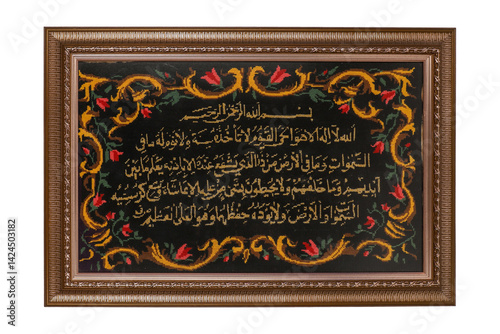 بسم الله الرحمن الرحيم
الله لا إله إلا هو الحي القيوم لا تأخذه سنة ولا نوم له ما في
السموات وما في الأرض من ذا الذي يشفع عنده إلا بإذنه يعلم ما بين
أيديهم وما خلفهم ولا يحيطون بشيء من علمه إلا بما شاء وسع كرسيه
السموات والأرض ولا يؤده حفظهما وهو العلي العظيم
Adobe Stock | #1424503182